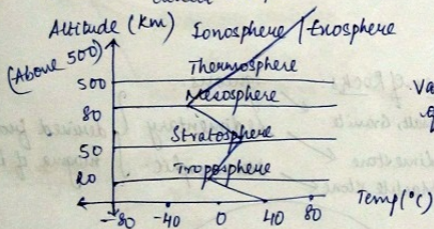 Altitude (Km) Ionosphere / Exosphere
(Above 500)
Thermosphere
500
Mesosphere
80
Stratosphere
50
Troposphere
20
-80 -40 0 40 80 Temp (°C)
Va